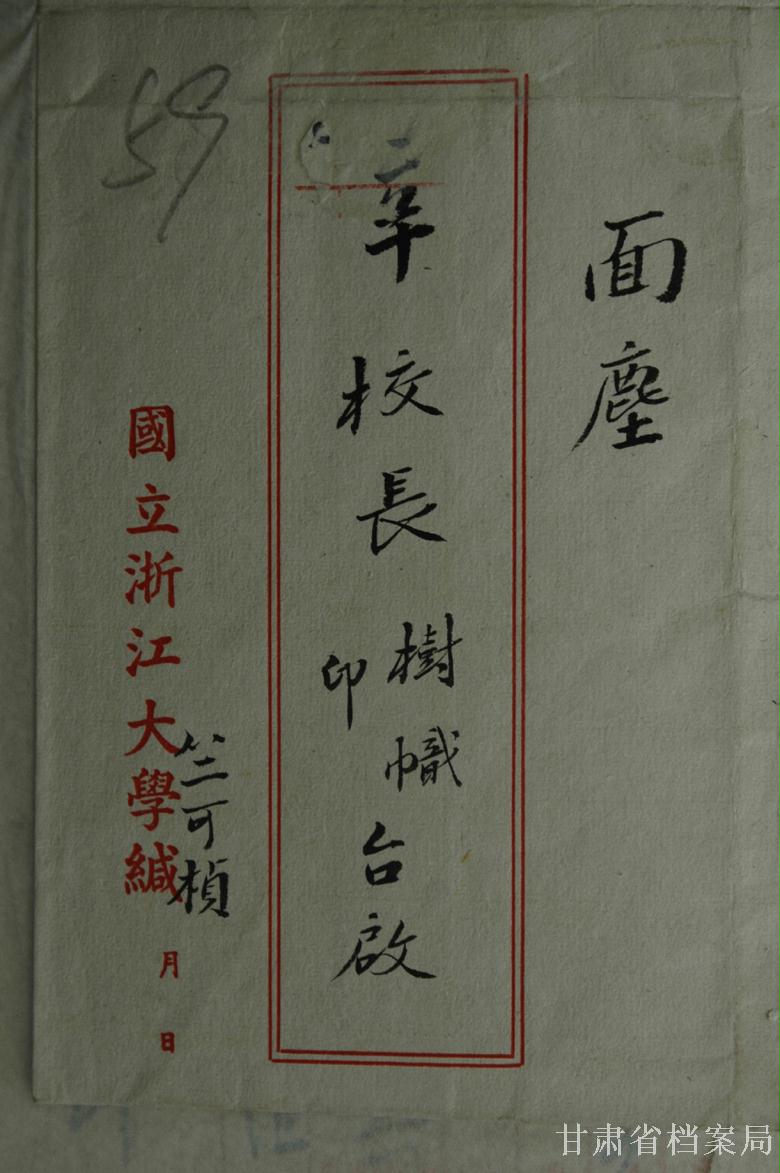 面塵
辛校長樹幟印台啟
國立浙江大學緘
竺可楨
月 日
59
甘肃省档案局